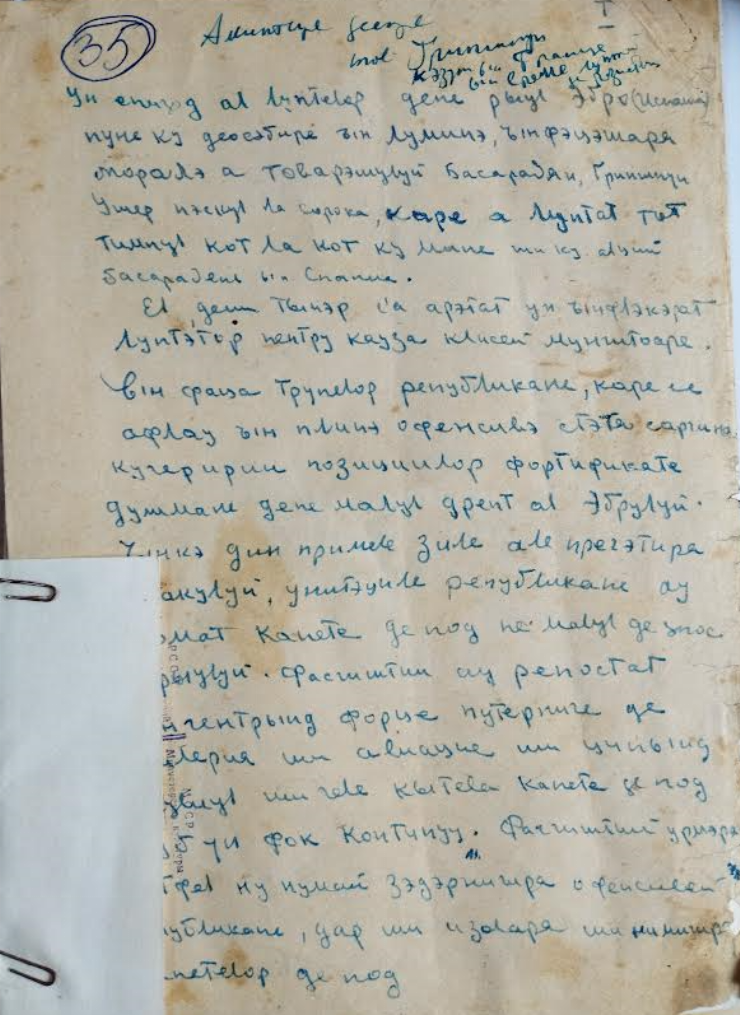 35
Аминтире деспре
тов Гриншпун
кэзут ын Франца
Ун епизод ал луптелор депе рыул Эбро (Испания)
пуне ку деосэбире ын луминэ, ынфэцошаря
моралэ а товарэшулуй басарабян, Гриншпун
Ушер нэскут ла Сорока, каре а луптат тот
тимпул кот ла кот ку мине ши ку алций
басарабень ын Спания.
Ел, деши тынэр с'а арэтат ун ынфлэкэрат
луптэтор пентру кауза класей мунчитоаре.
Ын фаца трупелор републикане, каре се
афлау ын плинэ офенсивэ стэтя сарчина
кучеририи позициилор фортификате
душмане депе малул дрепт ал Эбрулуй.
Ынкэ дин примеле зиле але прегэтиря
акулуй, унитэциле републикане ау
рмат капете де под пе малул де жос
рыулуй. Фасчиштии ау репостат
нчентрынд форце путерниче де
лерия ши авиацие ши цинынд
ул ши челе кытева капете де под
ун фок континуу. Фасчиштий урмэря
тфел ну нумай зэдэрничиря офенсивей
публикане, дар ши изоларя ши нимичиря
апетелор де под